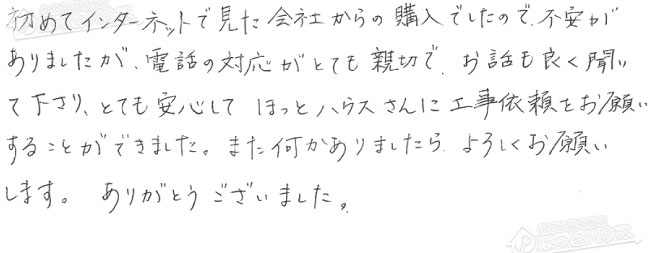 初めてインターネットで見た会社からの購入でしたので、不安が
ありましたが、電話の対応がとても親切で、お話も良く聞い
て下さり、とても安心して ほっとハウスさんに工事依頼をお願い
することができました。また何かありましたら、よろしくお願い
します。 ありがとうございました。